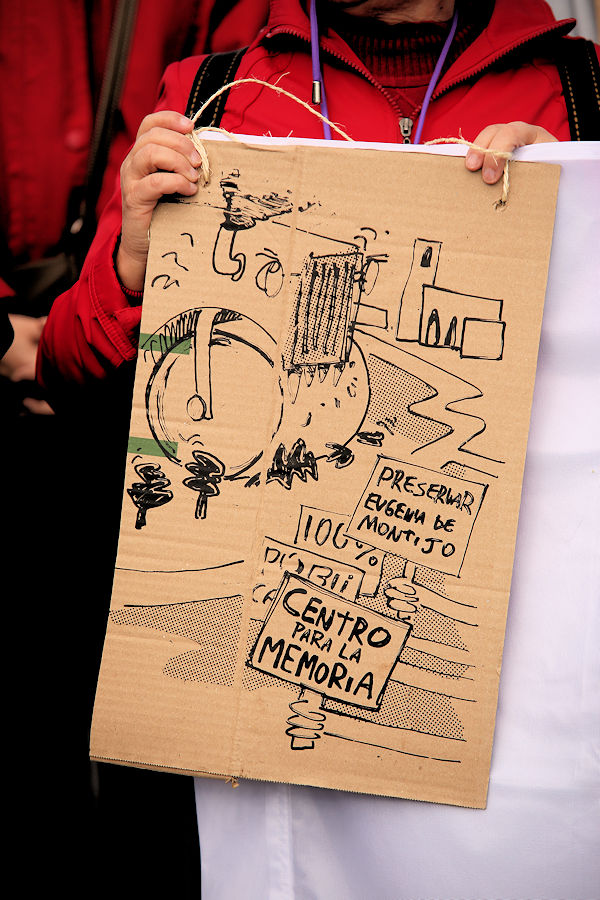 PRESERVAR
EUGENIA DE
MONTIJO
100%
CENTRO
PARA LA
MEMORIA